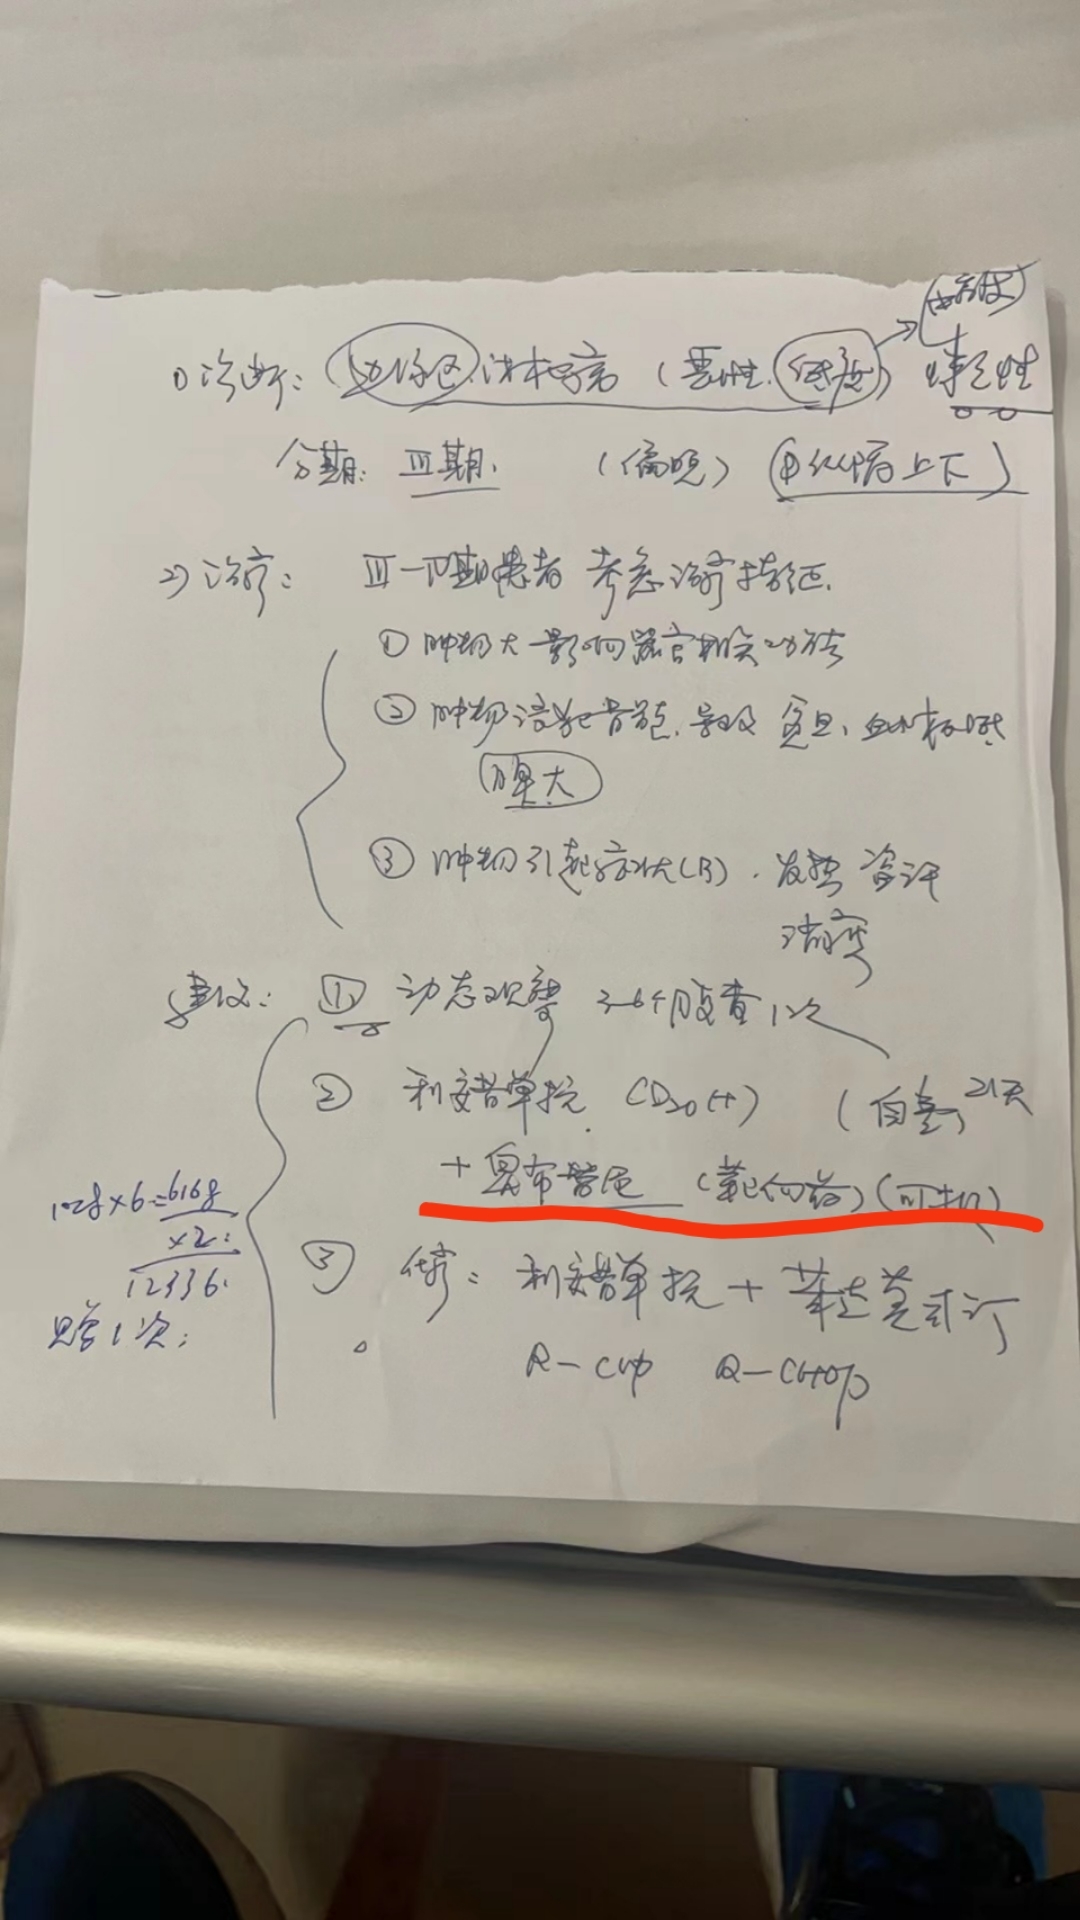 1) 诊断: 边缘区淋巴瘤 (恶性, 低度) → 惰性
分期: Ⅲ期. (偏晚) (纵隔上下)
2) 治疗: Ⅲ-Ⅳ期患者 考虑治疗指征.
① 肿物大 影响器官相关功能
② 肿物侵犯骨髓, 导致 贫血、血小板减
脾大
③ 肿物引起症状(B). 发热 盗汗
消瘦
建议: ① 动态观察 3-6个月复查1次
② 利妥昔单抗. CD20(+) (自费) 21天
+ 奥布替尼 (靶向药)
1028×6=6168
×2:
12336.
赠1次;
③ 化疗: 利妥昔单抗 + 苯达莫司汀
R-CVP R-CHOP